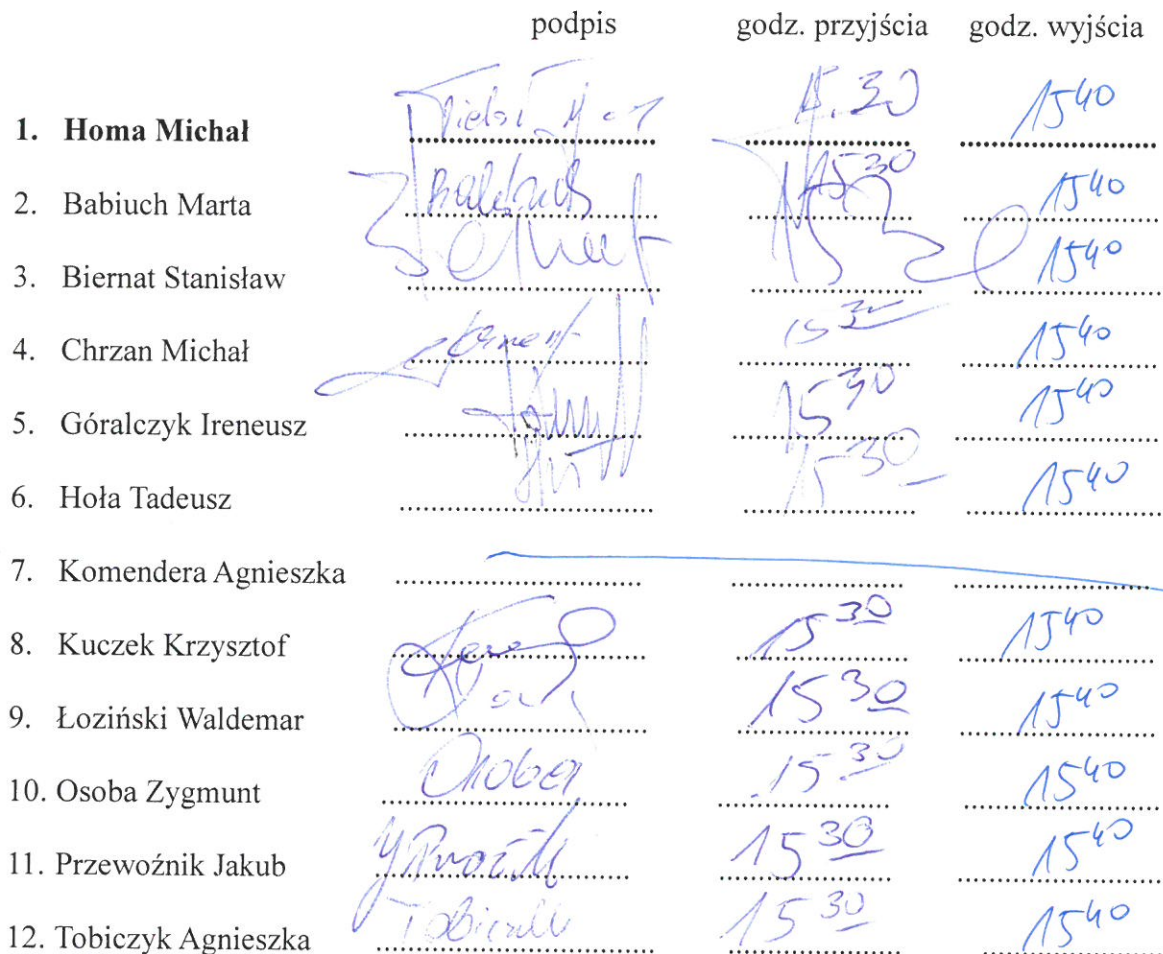 podpis godz. przyjścia godz. wyjścia
1. Homa Michał 15.30 15 40
2. Babiuch Marta 15 30 15 40
3. Biernat Stanisław 15 40
4. Chrzan Michał 15 30 15 40
5. Góralczyk Ireneusz 15 30 15 40
6. Hoła Tadeusz 15 30 15 40
7. Komendera Agnieszka
8. Kuczek Krzysztof 15 30 15 40
9. Łoziński Waldemar 15 30 15 40
10. Osoba Zygmunt Osoba 15 30 15 40
11. Przewoźnik Jakub 15 30 15 40
12. Tobiczyk Agnieszka 15 30 15 40